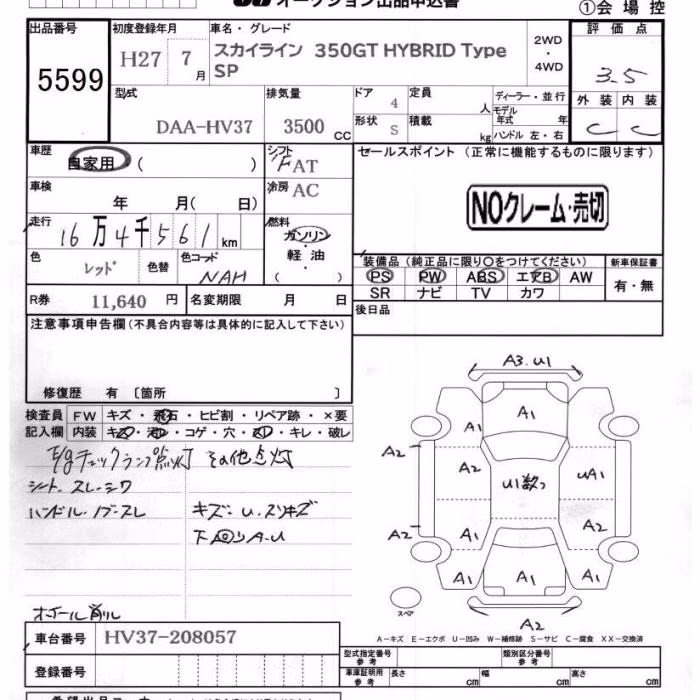 オークション出品申込書
①会場控
出品番号
5599
初度登録年月
H27 7月
車名・グレード
スカイライン 350GT HYBRID Type SP
2WD
・
4WD
評価点
3.5
外装 内装
C C
型式
DAA-HV37
排気量
3500 CC
ドア 4
定員 人
形状 S
積載 kg
ディーラー・並行
モデル年式 年
ハンドル 左・右
車歴
自家用 ( )
シフト
FAT
冷房 AC
セールスポイント (正常に機能するものに限ります)
NOクレーム・売切
車検
年 月( 日)
走行
16万4千561 km
燃料
ガソリン
・
軽油
( )
色 レッド
色替
色コード NAH
装備品 (純正品に限り○をつけてください)
PS PW ABS エアB AW
SR ナビ TV カワ
新車保証書
有・無
R券 11,640 円
名変期限 月 日
後日品
注意事項申告欄(不具合内容等は具体的に記入して下さい)
修復歴 有 〔箇所 〕
検査員 FW キズ・飛石・ヒビ割・リペア跡・×要
記入欄 内装 キズ・汚レ・コゲ・穴・スレ・キレ・破レ
E/gチェックランプ点灯 その他点灯
シート、スレ・シワ
ハンドル・ノブ・スレ
キズ・U、スリキズ
下回りA-U
ホイール削ル
A3.U1
A1
A1
A1
A2
A2
U1数つ
UA1
A2
A2
A1
A1
A1
A2
スペア
A-キズ E-エクボ U-凹み W-補修跡 S-サビ C-腐食 XX-交換済
車台番号 HV37-208057
登録番号
型式指定番号 参考
類別区分番号 参考
車庫証明用 参考
長さ cm
幅 cm
高さ cm